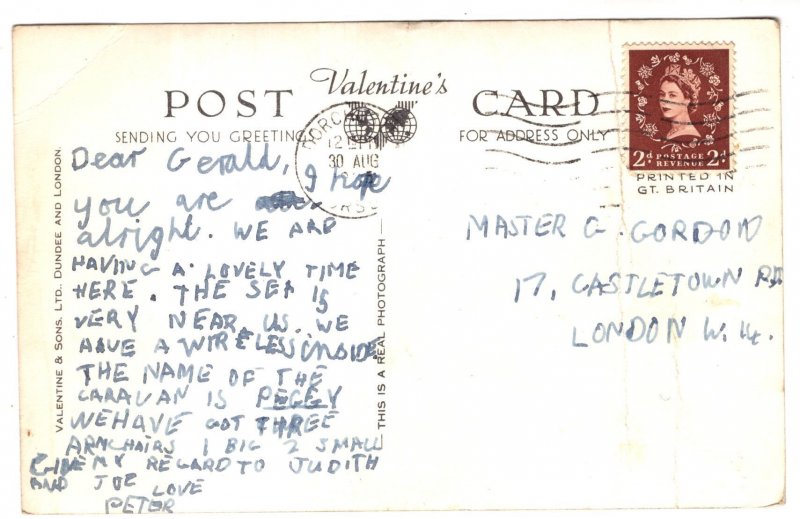 Valentine's
POST CARD
SENDING YOU GREETINGS
FOR ADDRESS ONLY
30 AUG
2d POSTAGE REVENUE 2d
PRINTED IN
GT. BRITAIN
VALENTINE & SONS. LTD. DUNDEE AND LONDON.
Dear Gerald, I hope
you are
alright. WE ARE
HAVING A LOVELY TIME
HERE. THE SEA IS
VERY NEAR US. WE
HAVE A WIRELESS inSIDE.
THE NAME OF THE
CARAVAN IS PEGGY
WE HAVE GOT THREE
ARMCHAIRS 1 BIG 2 SMALL
GIVE MY REGARD TO JUDITH
AND JOE LOVE
PETER
THIS IS A REAL PHOTOGRAPH
MASTER G. GORDON
17, CASTLETOWN RD
LONDON W. 14.